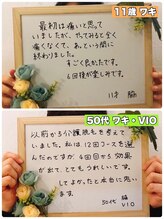 11歳 ワキ
最初は痛いと思って
いましたが、やってみると全く
痛くなくて、あっという間に
終わりました。
すごく良かたです。
6回後が楽しみです。
11才 脇
50代 ワキ・VIO
以前から介護脱毛を考えて
いました。私は12回コースを選
んだのですが、4回目から効果
が出て、とてもうれしいです。
してよかったと本当に思い
ます。
50代 脇
VIO